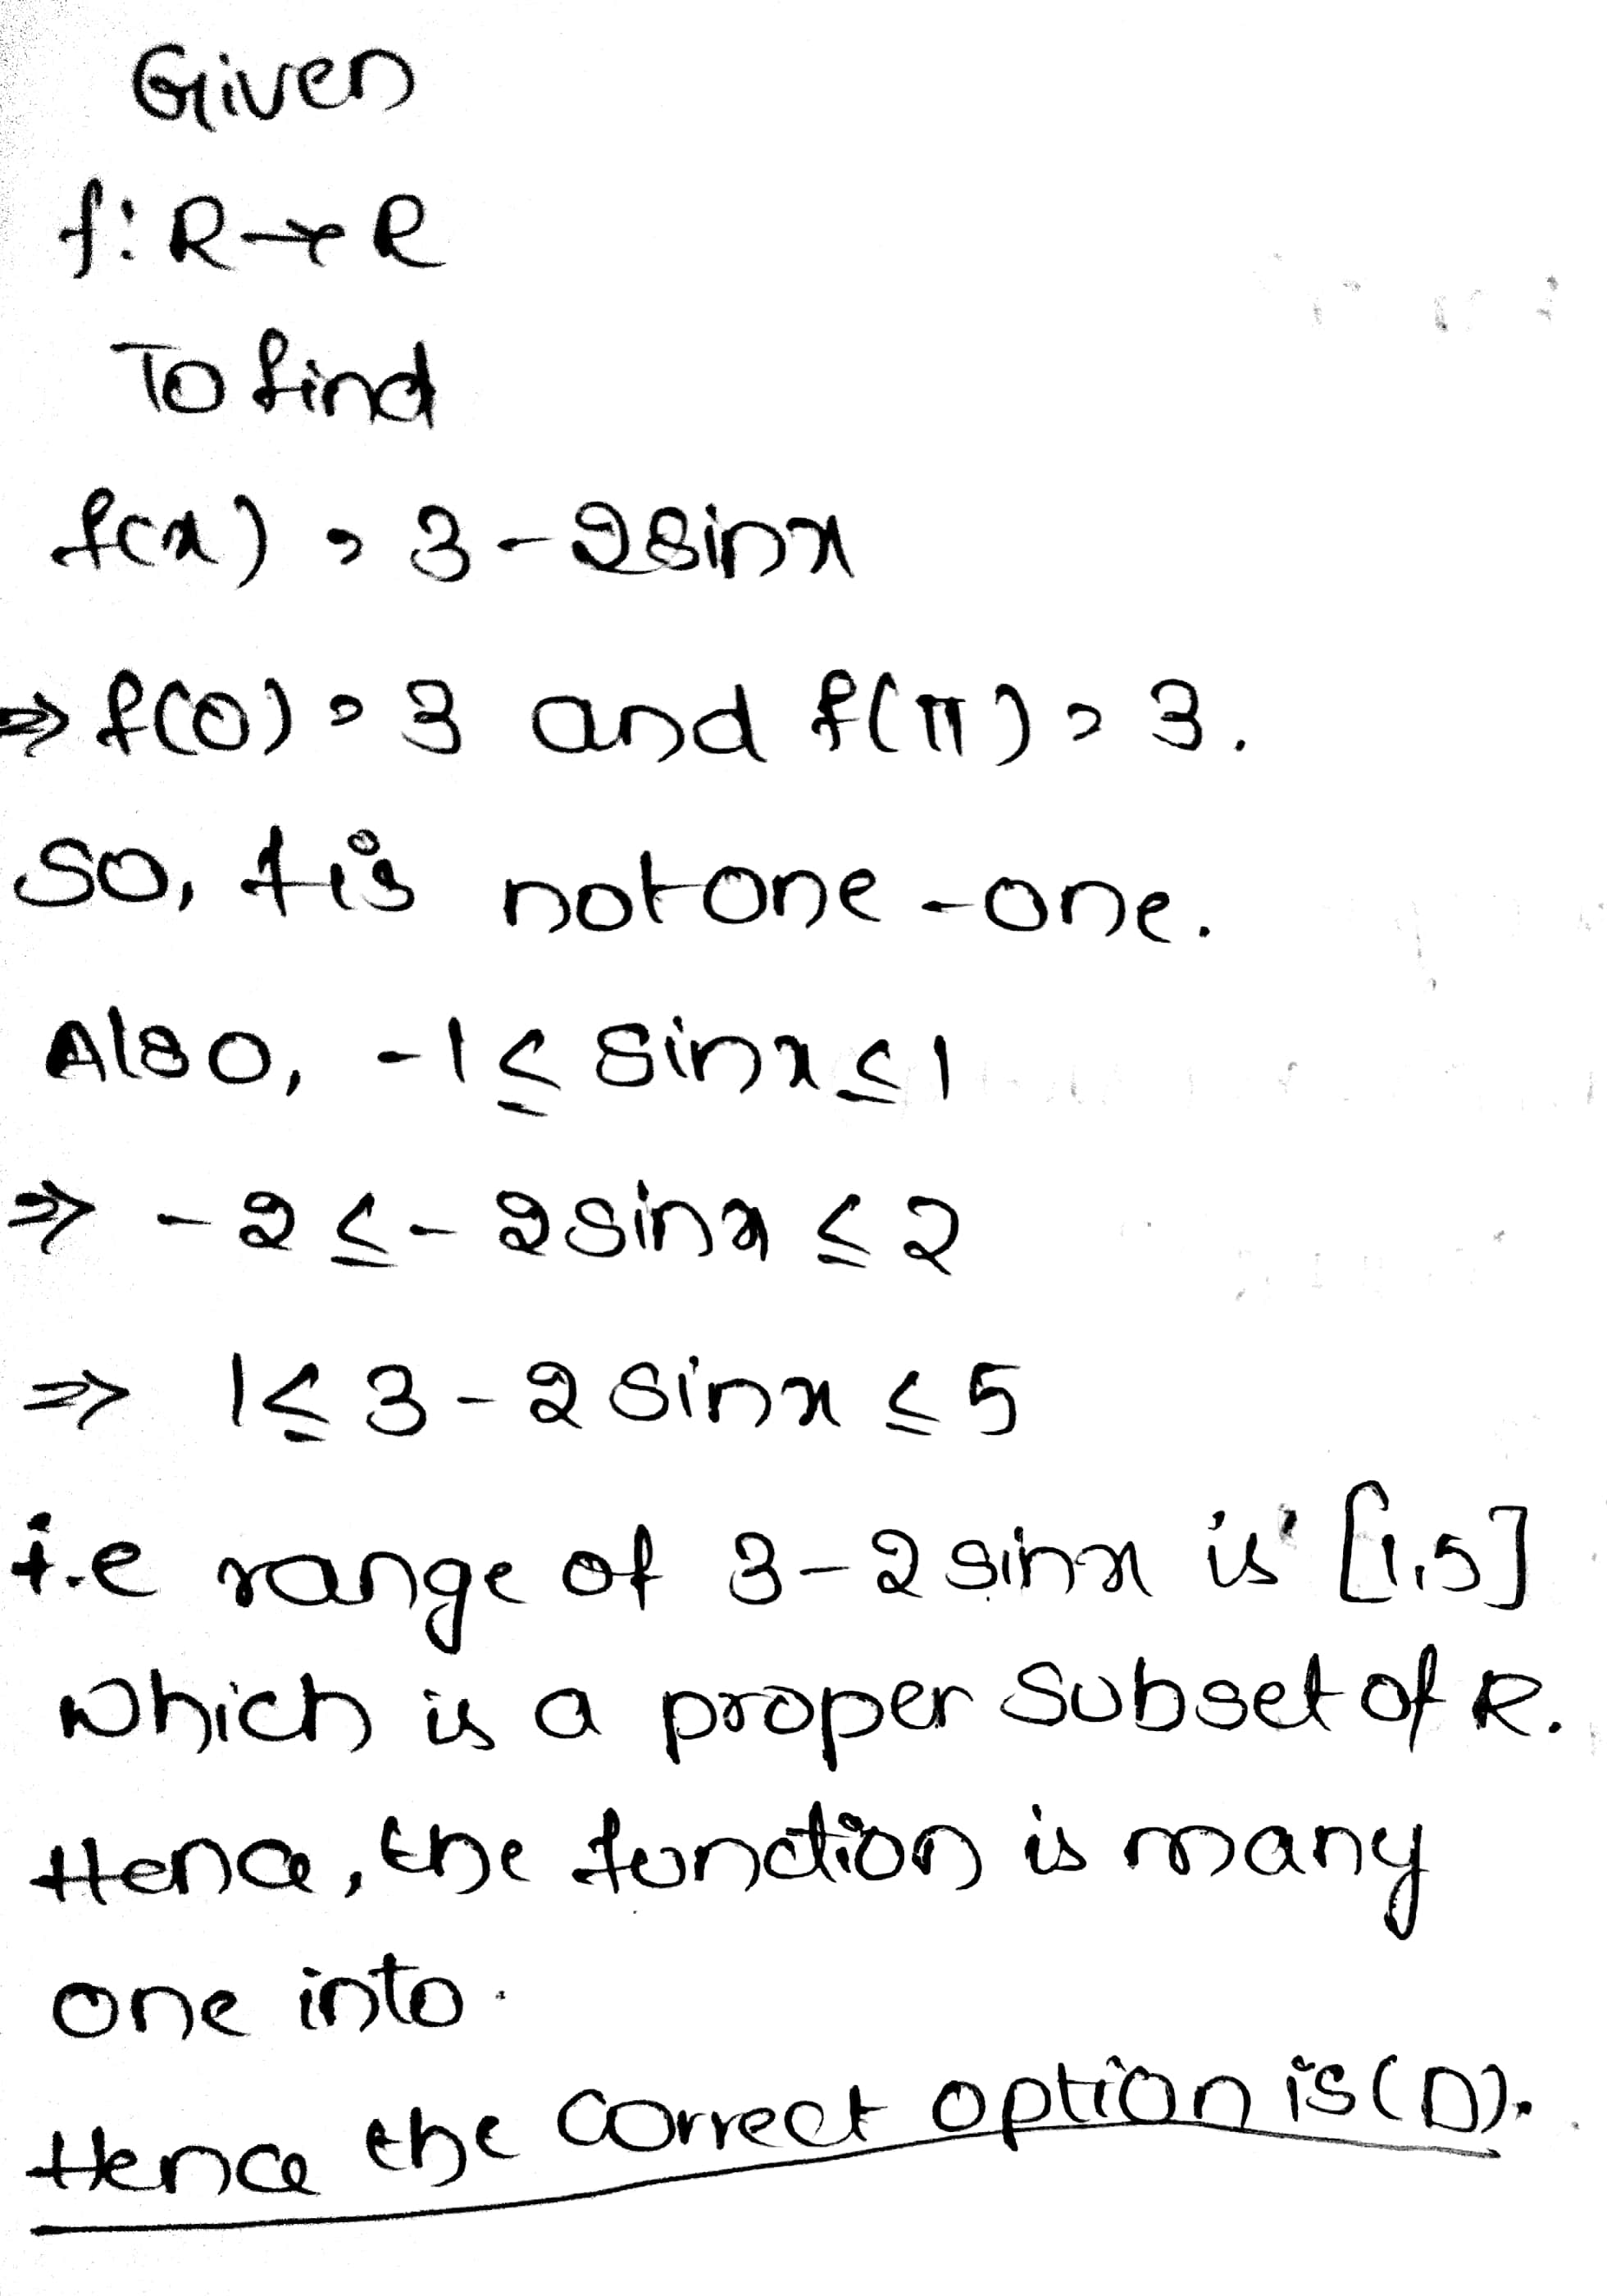 Given
f: R → R
To find
f(x) = 3 - 2 sin x
⇒ f(0) = 3 and f(π) = 3.
So, f is not one-one.
Also, -1 ≤ sin x ≤ 1
⇒ -2 ≤ -2 sin x ≤ 2
⇒ 1 ≤ 3 - 2 sin x ≤ 5
i.e range of 3 - 2 sin x is [1,5]
which is a proper subset of R.
Hence, the function is many
one into.
Hence the correct option is (D).